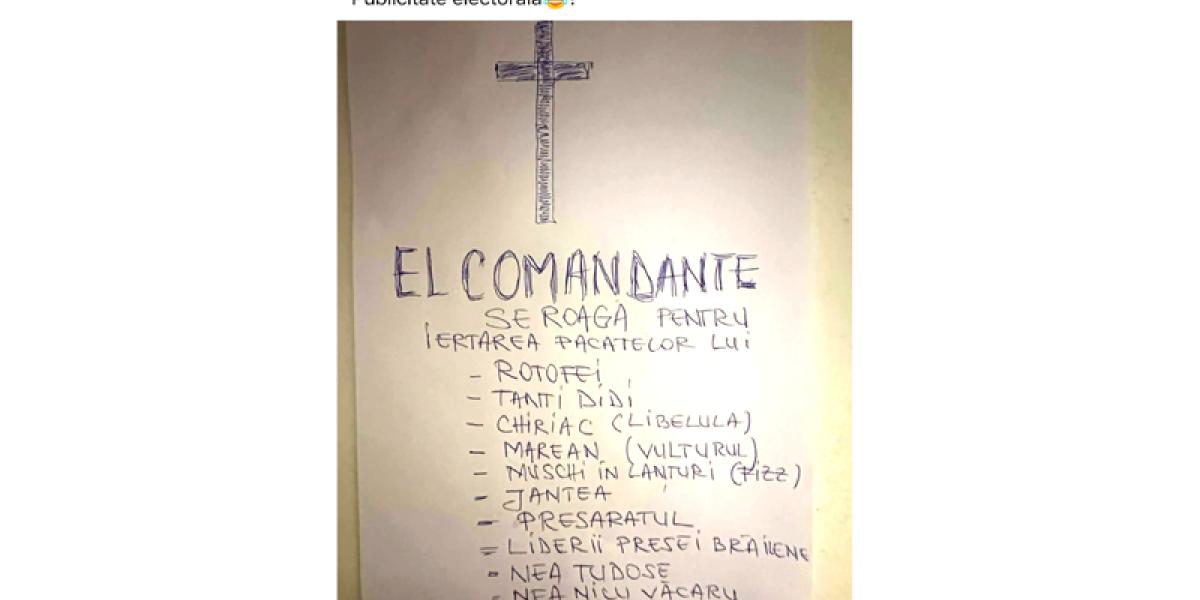 Publicitate electorală😂!
EL COMANDANTE
SE ROAGĂ PENTRU
IERTAREA PACATELOR LUI
- ROTOFEI
- TANTI DIDI
- CHIRIAC (LIBELULA)
- MAREAN (VULTURUL)
- MUSCHI IN LANTURI (FIZZ)
- JANTEA
- PRESARATUL
= LIDERII PRESEI BRĂILENE
- NEA TUDOSE
- NEA NICU VĂCARU